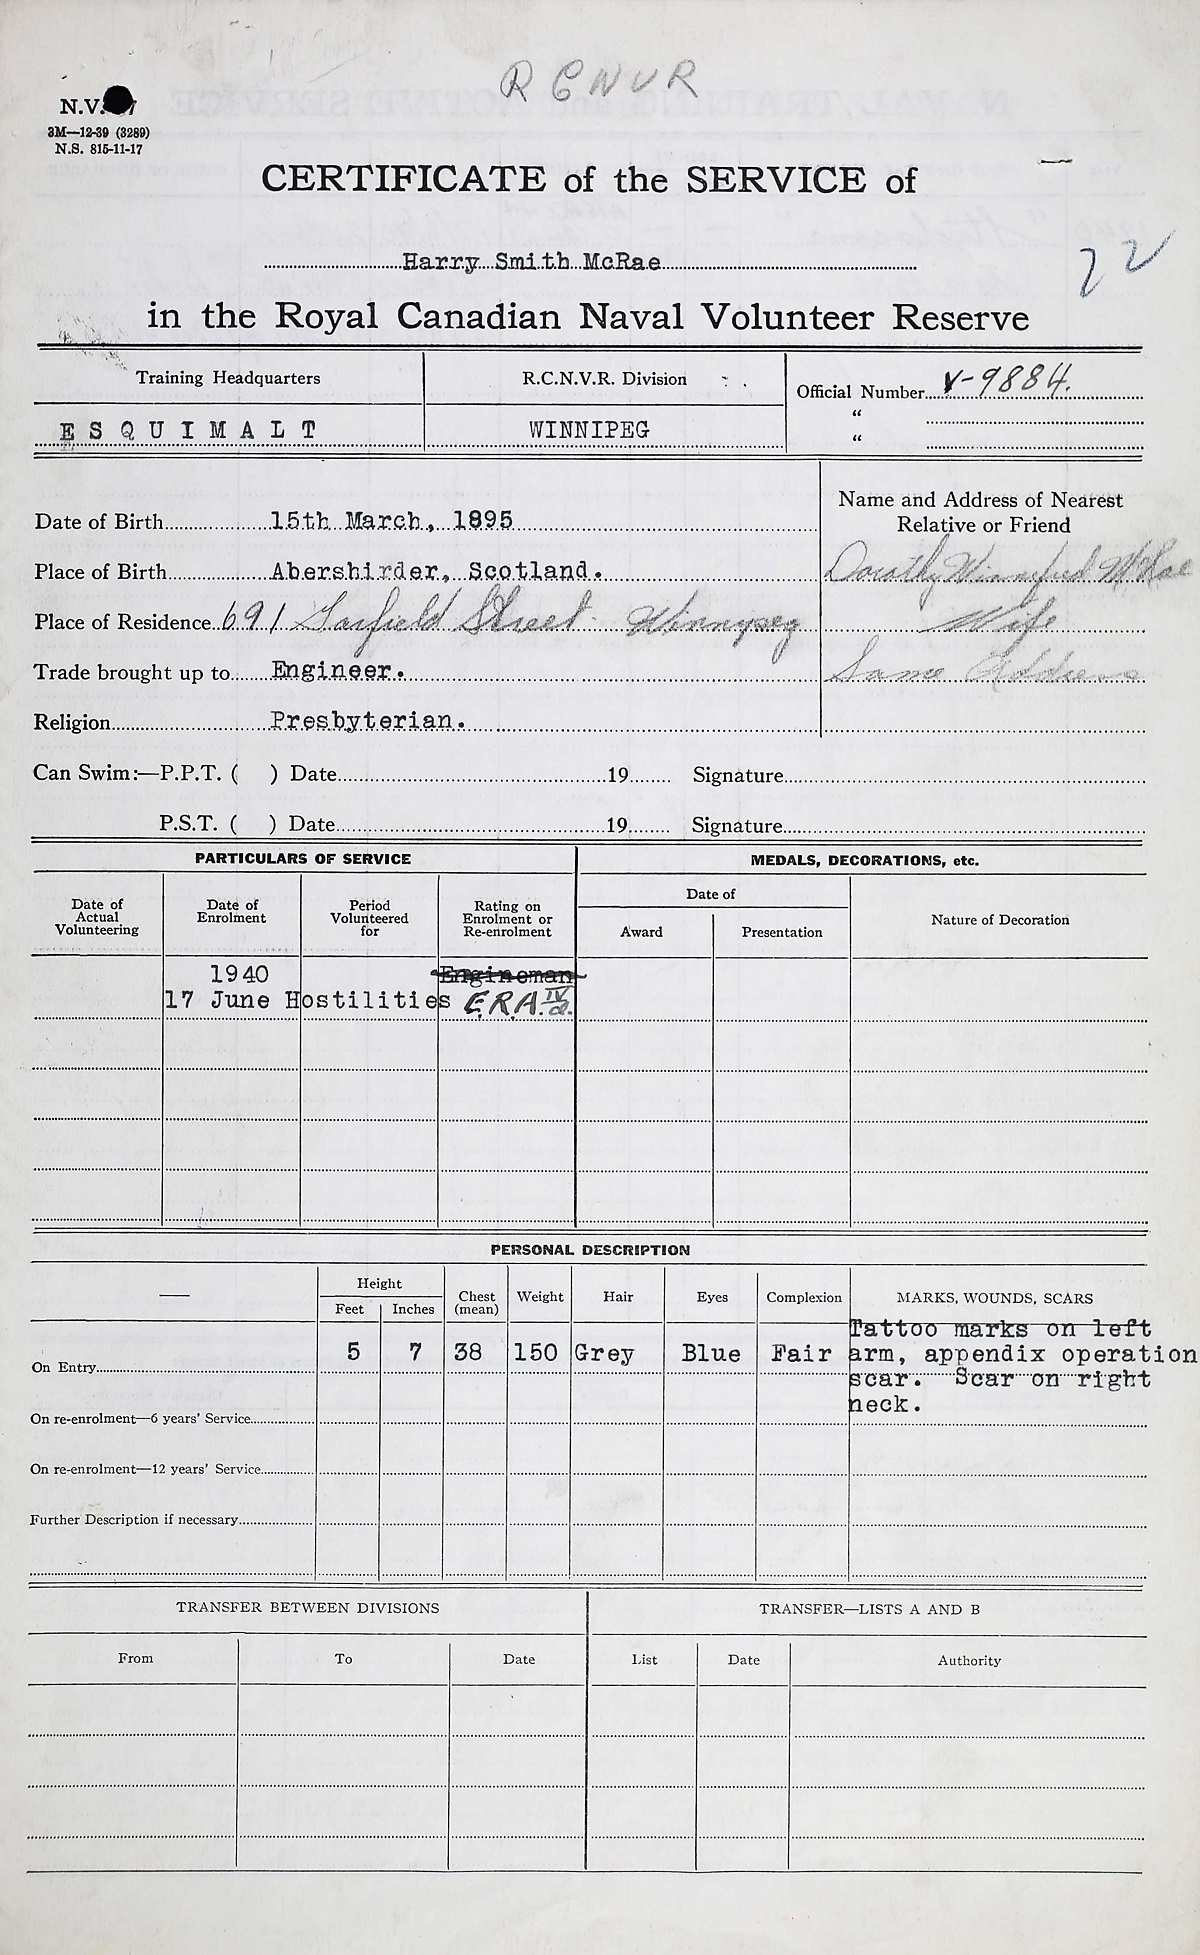 R C N V R
N.V.
3M—12-39 (3289)
N.S. 815-11-17
CERTIFICATE of the SERVICE of
Harry Smith McRae
22
in the Royal Canadian Naval Volunteer Reserve
Training Headquarters
R.C.N.V.R. Division
Official Number V-9884.
"
"
ESQUIMALT
WINNIPEG
Name and Address of Nearest
Relative or Friend
Date of Birth 15th March, 1895
Place of Birth Abershirder, Scotland.
Dorothy Winnefred McRae
Place of Residence 691 Garfield Street Winnipeg
Wife
Trade brought up to Engineer.
Same Address
Religion Presbyterian.
Can Swim:—P.P.T. ( ) Date 19 Signature
P.S.T. ( ) Date 19 Signature
PARTICULARS OF SERVICE
MEDALS, DECORATIONS, etc.
Date of
Actual
Volunteering
Date of
Enrolment
Period
Volunteered
for
Rating on
Enrolment or
Re-enrolment
Date of
Award
Presentation
Nature of Decoration
1940 Engineman
17 June Hostilities E.R.A. IV cl.
PERSONAL DESCRIPTION
—
Height
Feet
Inches
Chest
(mean)
Weight
Hair
Eyes
Complexion
MARKS, WOUNDS, SCARS
On Entry 5 7 38 150 Grey Blue Fair
Tattoo marks on left
arm, appendix operation
scar. Scar on right
neck.
On re-enrolment—6 years' Service
On re-enrolment—12 years' Service
Further Description if necessary
TRANSFER BETWEEN DIVISIONS
TRANSFER—LISTS A AND B
From
To
Date
List
Date
Authority